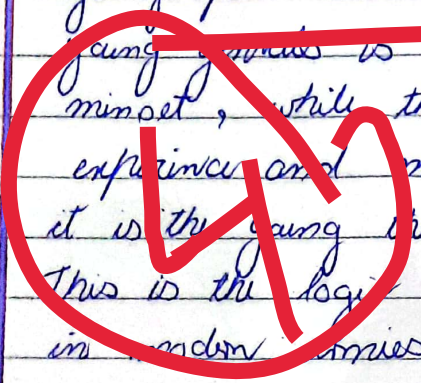 young is
minset, while th
experince and
it is the young th
This is the logic
in
4